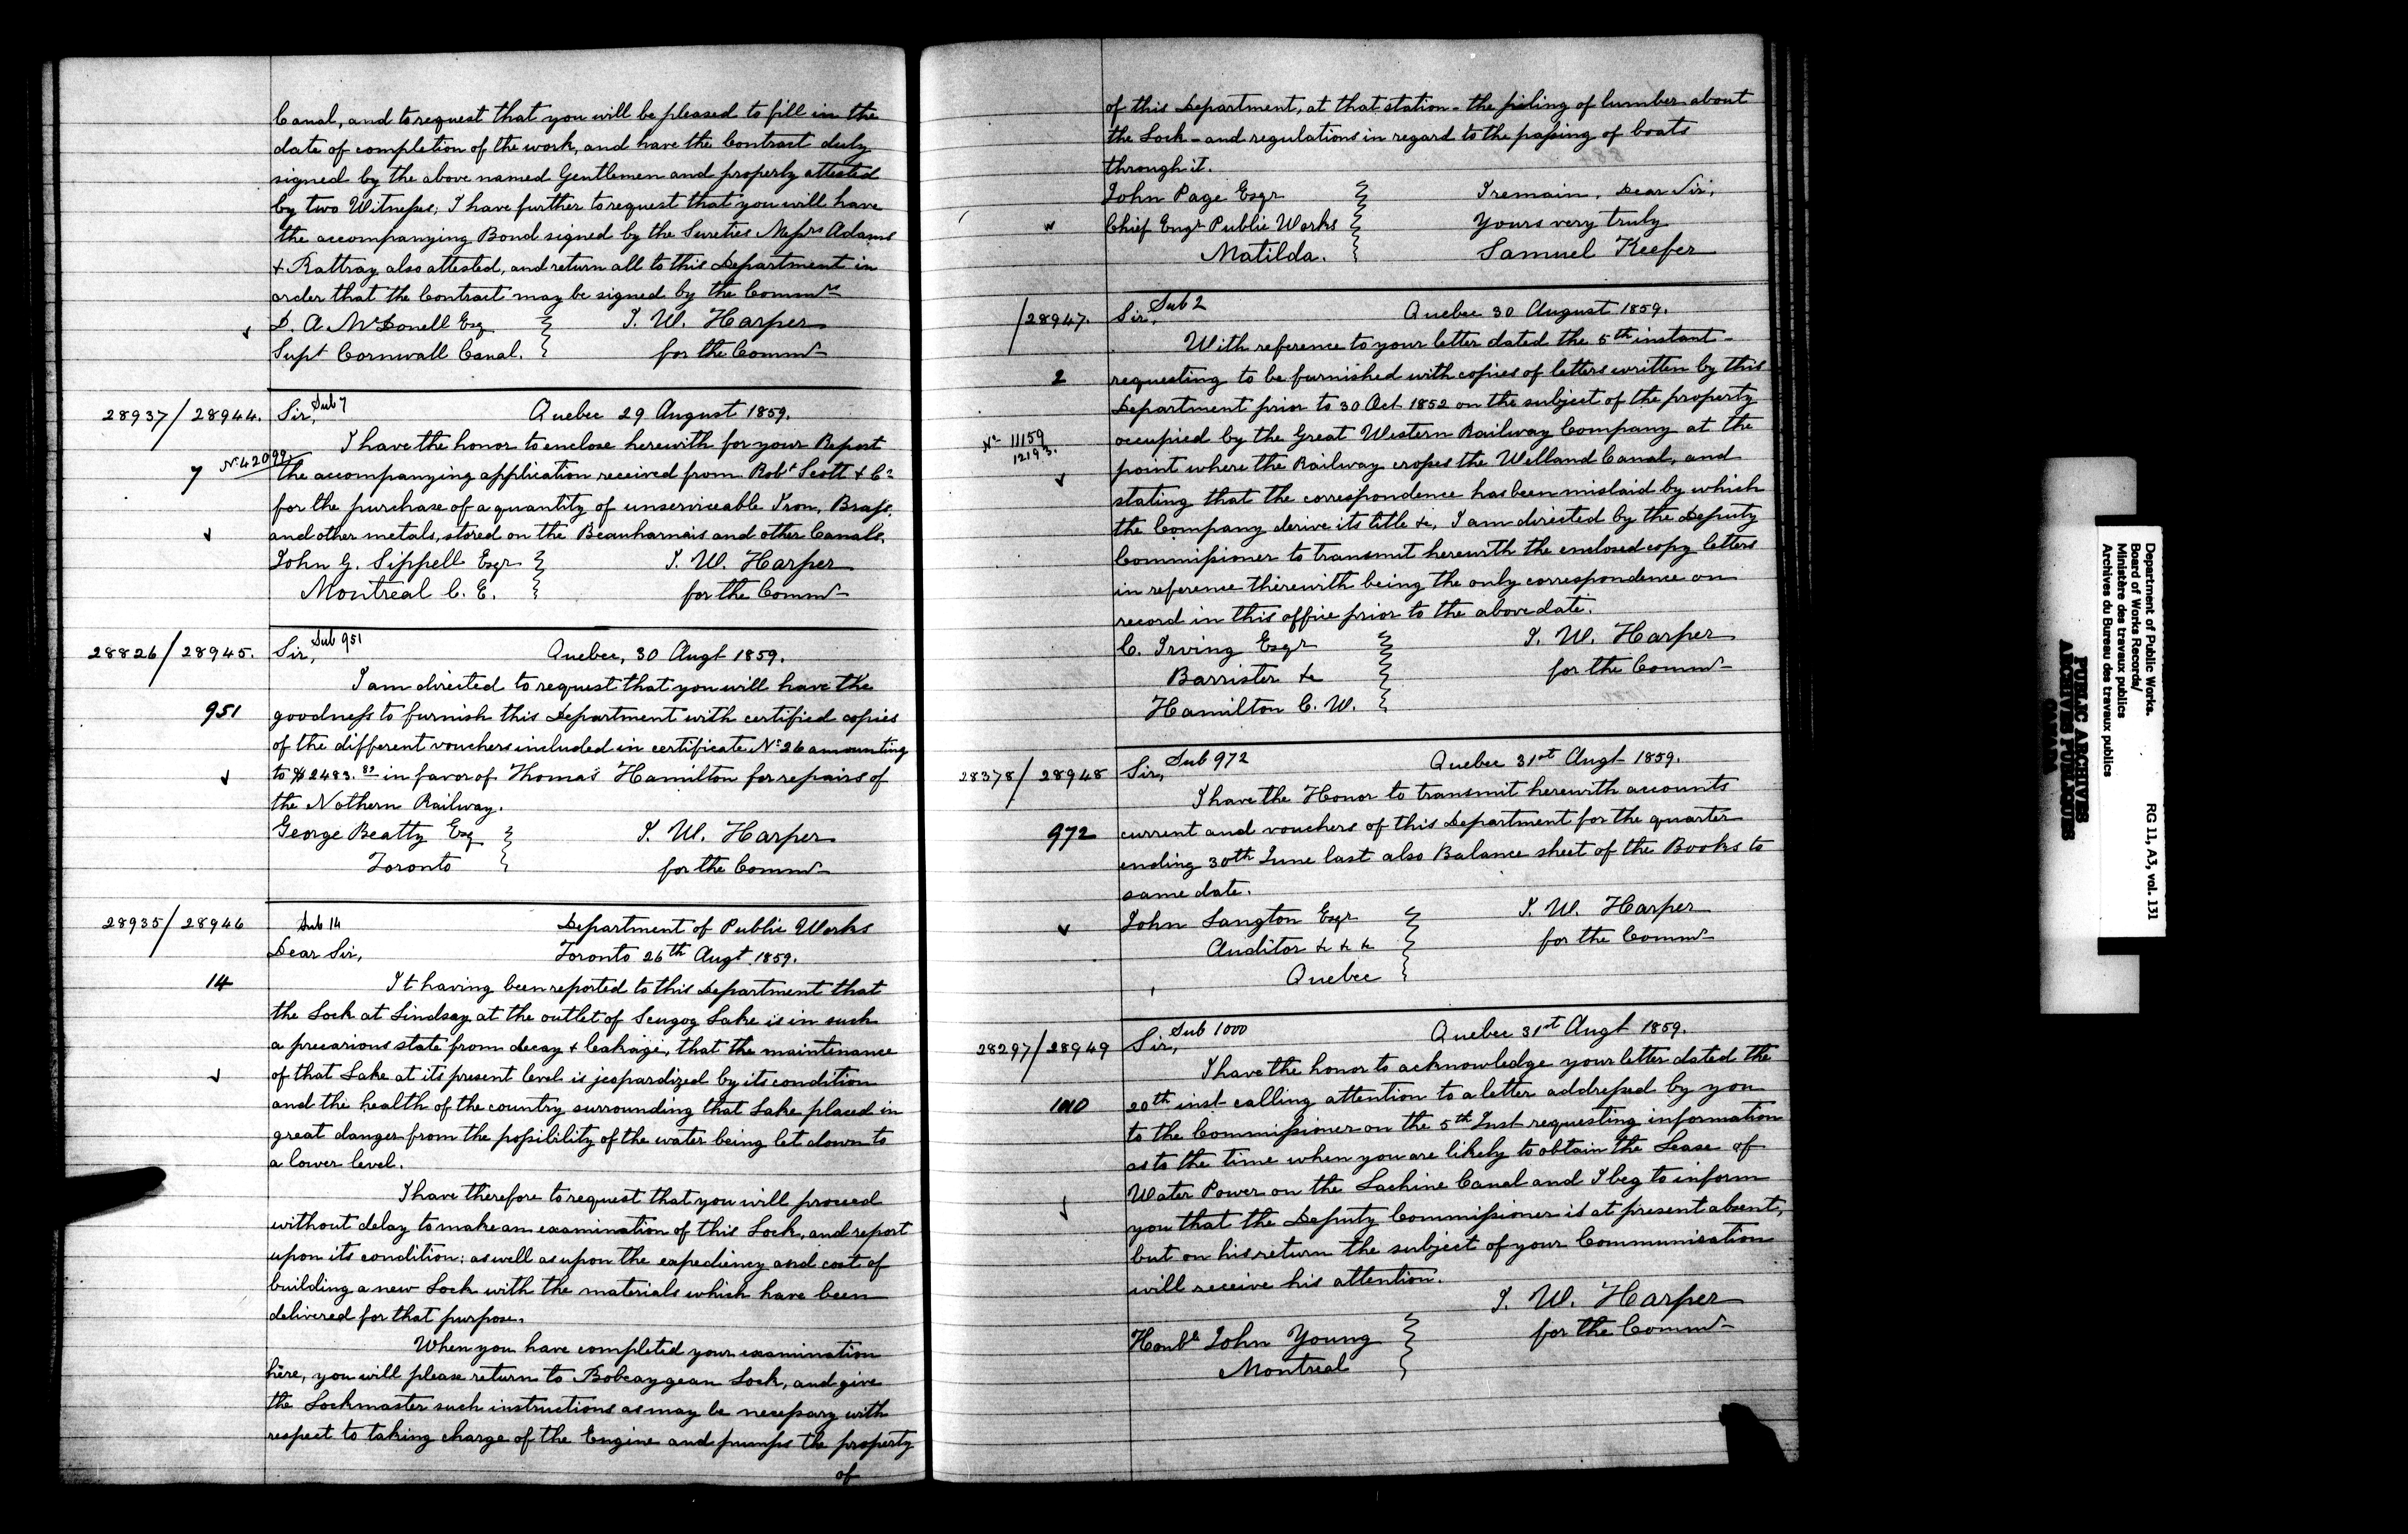 Canal, and to request that you will be pleased to fill in the
date of completion of the work, and have the Contract duly
signed by the above named Gentlemen and properly attested
by two Witnesses; I have further to request that you will have
the accompanying Bond signed by the Sureties Messrs Adams
& Rattray also attested, and return all to this Department in
order that the Contract may be signed by the Commrs
D. A. McDonell Esq
Supt Cornwall Canal.
T. W. Harper
for the Commr
28937/28944.
Sir, Sub 7
Quebec 29 August 1859.
I have the honor to enclose herewith for your Report
7 No 42099.
the accompanying application received from Robt Scott & Co
for the purchase of a quantity of unserviceable Iron, Brass,
and other metals, stored on the Beauharnais and other Canals.
John G. Sippell Esqr
Montreal C. E.
T. W. Harper
for the Commr
28826/28945.
Sir, Sub 951
Quebec, 30 Augt 1859.
I am directed to request that you will have the
951
goodness to furnish this Department with certified copies
of the different vouchers included in certificate No 26 amounting
to $2483. 82 in favor of Thomas Hamilton for repairs of
the Nothern Railway.
George Beatty Esq
Toronto
T. W. Harper
for the Commr
28935/28946
Sub 14
Department of Public Works
Dear Sir,
Toronto 26th Augt 1859.
14
It having been reported to this Department that
the Lock at Lindsay at the outlet of Scugog Lake is in such
a precarious state from decay & leakage, that the maintenance
of that Lake at its present level is jeopardized by its condition
and the health of the country surrounding that Lake placed in
great danger from the possibility of the water being let down to
a lower level.
I have therefore to request that you will proceed
without delay to make an examination of this Lock, and report
upon its condition: as well as upon the expediency and cost of
building a new Lock with the materials which have been
delivered for that purpose.
When you have completed your examination
here, you will please return to Bobcaygean Lock, and give
the Lockmaster such instructions as may be necessary with
respect to taking charge of the Engine and pumps the property
of
of this Department, at that station - the piling of lumber about
the Lock - and regulations in regard to the passing of boats
through it.
John Page Esqr
Chief Engr Public Works
Matilda.
I remain, Dear Sir,
Yours very truly
Samuel Keefer
/28947.
Sir, Sub 2
Quebec 30 August 1859.
With reference to your letter dated the 5th instant -
2
requesting to be furnished with copies of letters written by this
Department prior to 30 Oct 1852 on the subject of the property
No 11159
12193.
occupied by the Great Western Railway Company at the
point where the Railway crosses the Welland Canal, and
stating that the correspondence has been mislaid by which
the Company derive its title &c, I am directed by the Deputy
Commissioner to transmit herewith the enclosed copy letters
in reference therewith being the only correspondence on
record in this office prior to the above date.
C. Irving Esqr
Barrister &c
Hamilton C. W.
T. W. Harper
for the Commr
28378/28948
Sir, Sub 972
Quebec 31st Augt 1859.
I have the Honor to transmit herewith accounts
972
current and vouchers of this Department for the quarter
ending 30th June last also Balance sheet of the Books to
same date.
John Langton Esqr
Auditor &c &c &c
Quebec
T. W. Harper
for the Commr
28297/28949
Sir, Sub 1000
Quebec 31st Augt 1859.
I have the honor to acknowledge your letter dated the
1000
20th inst calling attention to a letter addressed by you
to the Commissioner on the 5th Inst requesting information
as to the time when you are likely to obtain the Lease of
Water Power on the Lachine Canal and I beg to inform
you that the Deputy Commissioner is at present absent,
but on his return the subject of your Communication
will receive his attention.
T. W. Harper
for the Commr
Honble John Young
Montreal
Department of Public Works.
Board of Works Records/
Ministère des travaux publics
Archives du Bureau des travaux publics
RG 11, A3, vol. 131
PUBLIC ARCHIVES
ARCHIVES PUBLIQUES
CANADA